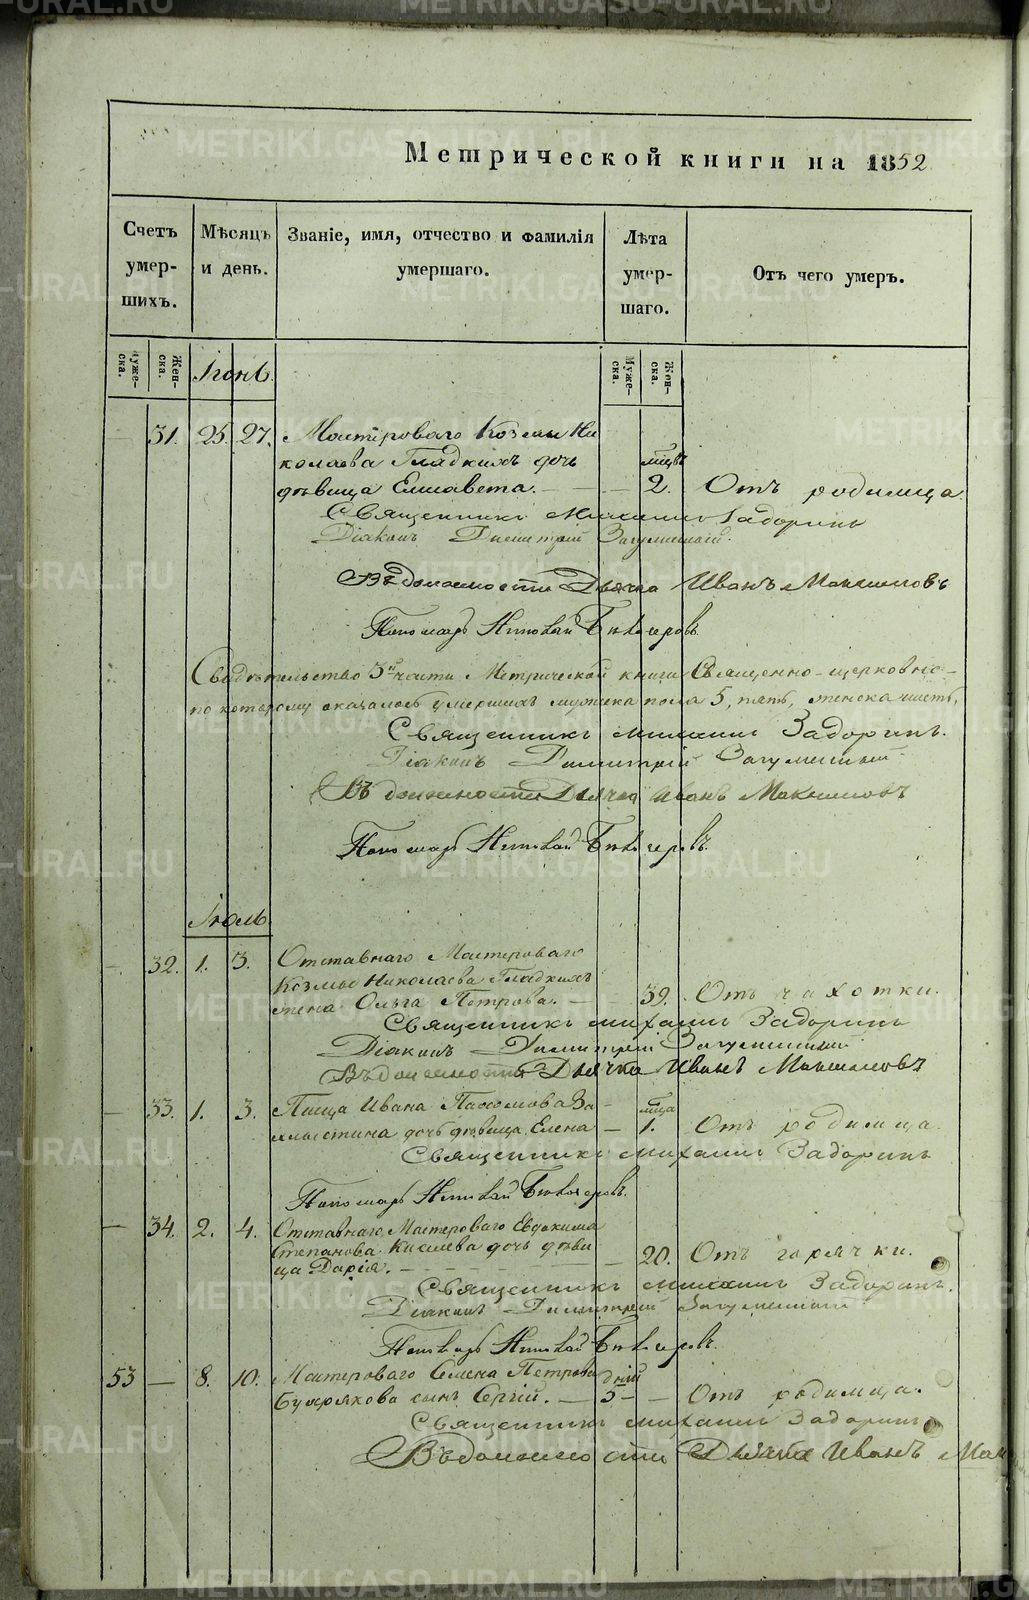 Метрической книги на 1852
Счетъ умер- шихъ.
Мѣсяцъ и день.
Званіе, имя, отчество и фамилія умершаго.
Лѣта умер- шаго.
Отъ чего умеръ.
Муже- ска.
Жен- ска.
Муже- ска.
Жен- ска.
Іюнь.
31. 25. 27. Мастероваго Козмы Ни-
колаева Гладкихъ дочь мцвъ
дѣвица Елисавета. 2. Отъ родимца
Священникъ Михаилъ Задоринъ
Діаконъ Димитрій Загуменный.
Въ должности Дьячка Иванъ Максимовъ
Пономарь Николай
Свидѣтельство 3й части Метрической книги Священно-церковно-
по которому оказалось умершихъ мужска пола 5, пять, женска шесть,
Священникъ Михаилъ Задоринъ.
Діаконъ Димитрій Загуменный.
Въ должности Дьячка Иванъ Максимовъ
Пономарь Николай
Іюль.
32. 1. 3. Отставнаго Мастероваго
Козмы Николаева Гладкихъ
жена Ольга Петрова. 39. Отъ чахотки.
Священникъ Михаилъ Задоринъ
Діаконъ Димитрій Загуменный
Въ должности Дьячка Иванъ Максимовъ
33. 1. 3. Писца Ивана Пахомова За- мца
дочь дѣвица Елена 1. Отъ родимца.
Священникъ Михаилъ Задоринъ
Пономарь Николай
34. 2. 4. Отставнаго Мастероваго Евдокима
Степанова Киселева дочь дѣви-
ца Дарія. 20. Отъ горячки.
Священникъ Михаилъ Задоринъ.
Діаконъ Димитрій Загуменный
Пономарь Николай
53 8. 10. Мастероваго Семена Петрова дній
сынъ Сергій. 5 Отъ родимца.
Священникъ Михаилъ Задоринъ
Въ должности Дьячка Иванъ Мак
METRIKI.GASO-URAL.RU